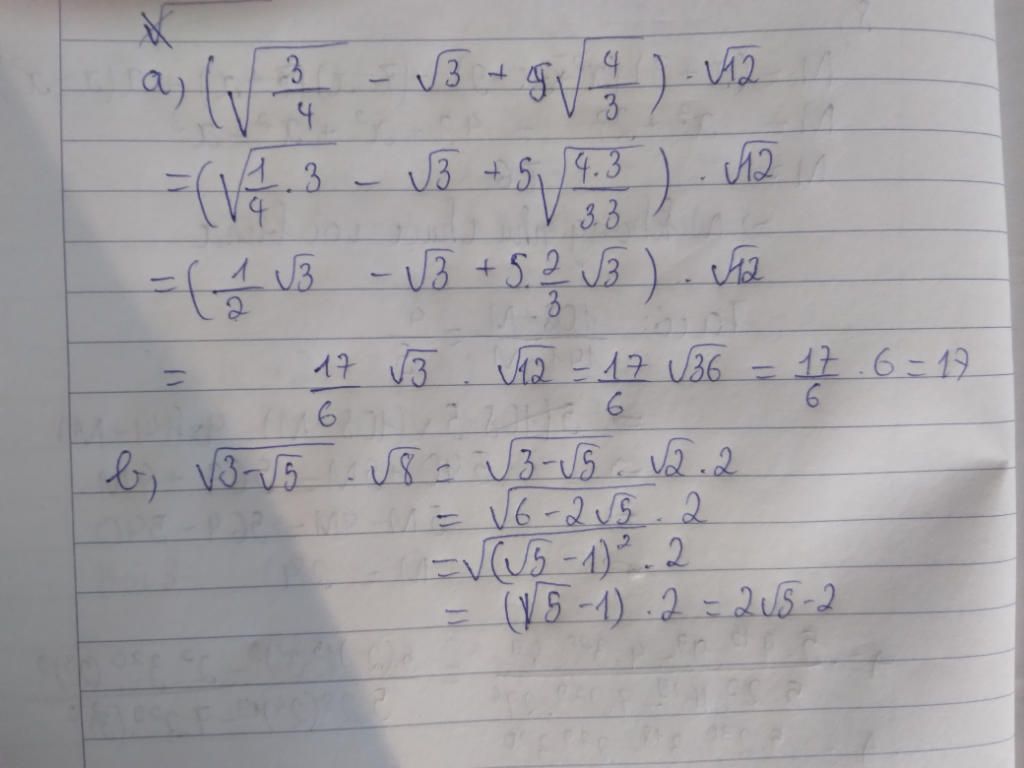 a, (√(3/4) - √3 + 5√(4/3)) . √12
= (√(1/4 . 3) - √3 + 5√(4.3/33)) . √12
= (1/2 √3 - √3 + 5. 2/3 √3) . √12
= 17/6 √3 . √12 = 17/6 √36 = 17/6 . 6 = 17
b, √(3-√5) . √8 = √(3-√5) . √2 . 2
= √(6 - 2√5) . 2
= √((√5 - 1)²) . 2
= (√5 - 1) . 2 = 2√5 - 2